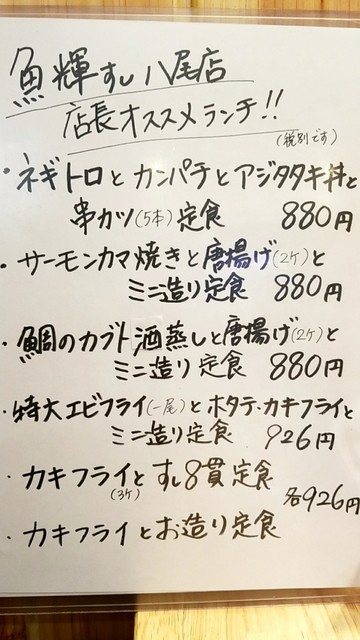 魚輝すし八尾店
店長オススメランチ!!
(税別です)
・ネギトロとカンパチとアジタタキ丼と
串カツ(5本)定食 880円
・サーモンカマ焼きと唐揚げ(2ケ)と
ミニ造り定食 880円
・鯛のカブト酒蒸しと唐揚げ(2ケ)と
ミニ造り定食 880円
・特大エビフライ(一尾)とホタテ・カキフライと
ミニ造り定食 926円
・カキフライとすし8貫定食
(3ケ)
各926円
・カキフライとお造り定食